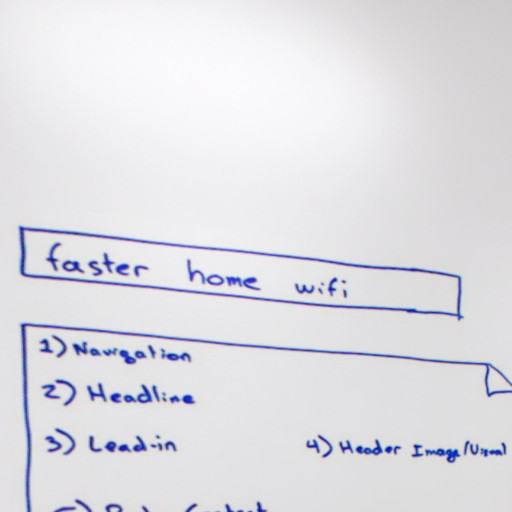 faster home wifi
1) Navigation
2) Headline
3) Lead-in
4) Header Image/Visual